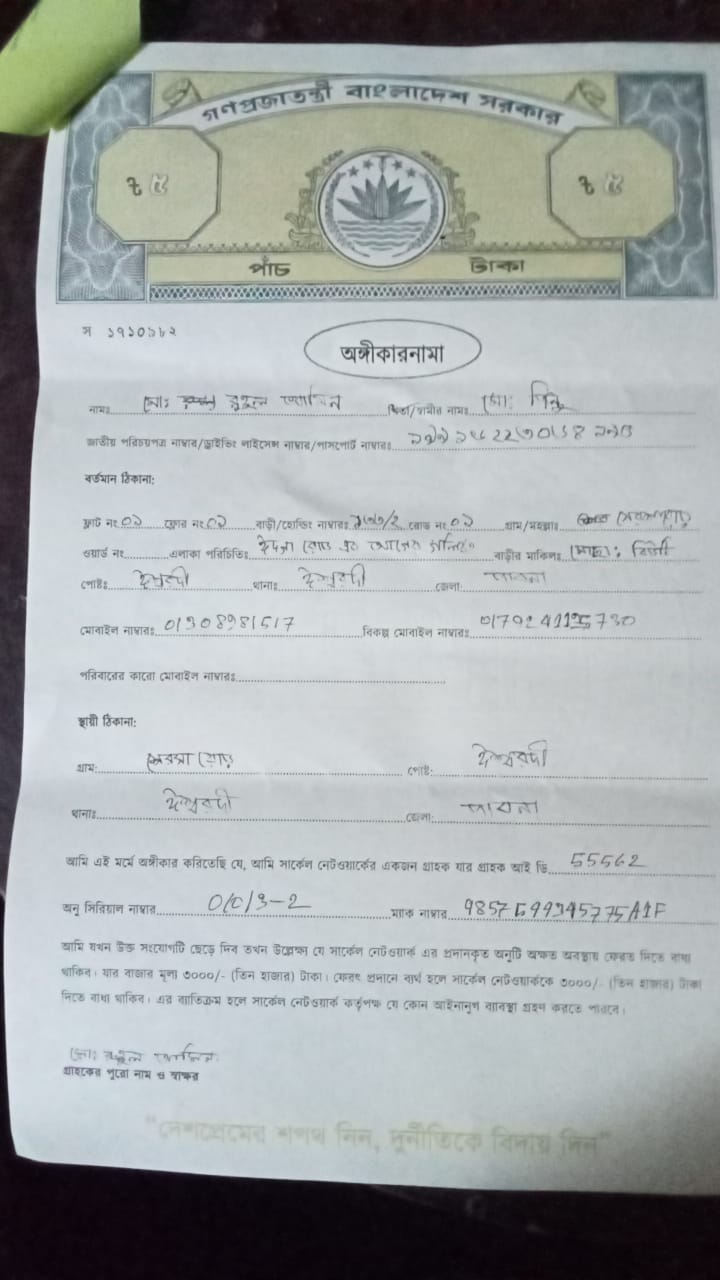 গণপ্রজাতন্ত্রী বাংলাদেশ সরকার
৳ ৫ ৳ ৫
পাঁচ টাকা
অঙ্গীকারনামা
নামঃ মোঃ রুহুল আমিন পিতা/স্বামীর নামঃ মোঃ
জাতীয় পরিচয়পত্র নাম্বার/ড্রাইভিং লাইসেন্স নাম্বার/পাসপোর্ট নাম্বারঃ
বর্তমান ঠিকানা:
ফ্লাট নং ০১ ফ্লোর নং ০১ বাড়ী/হোল্ডিং নাম্বারঃ রোড নং ০১ গ্রাম/মহল্লাঃ
ওয়ার্ড নং এলাকা পরিচিতিঃ বাড়ীর মালিকঃ মোছাঃ
পোষ্টঃ ঈশ্বরদী থানাঃ ঈশ্বরদী জেলাঃ পাবনা
মোবাইল নাম্বারঃ 01308981517 বিকল্প মোবাইল নাম্বারঃ
পরিবারের কারো মোবাইল নাম্বারঃ
স্থায়ী ঠিকানা:
গ্রাম: পোষ্ট: ঈশ্বরদী
থানাঃ ঈশ্বরদী জেলা: পাবনা
আমি এই মর্মে অঙ্গীকার করিতেছি যে, আমি সার্কেল নেটওয়ার্কের একজন গ্রাহক যার গ্রাহক আই ডি 55562
অনু সিরিয়াল নাম্বার ম্যাক নাম্বার
আমি যখন উক্ত সংযোগটি ছেড়ে দিব তখন উল্লেক্ষ্য যে সার্কেল নেটওয়ার্ক এর প্রদানকৃত অনুটি অক্ষত অবস্থায় ফেরত দিতে বাধ্য
থাকিব। যার বাজার মূল্য ৩০০০/- (তিন হাজার) টাকা। ফেরৎ প্রদানে ব্যর্থ হলে সার্কেল নেটওয়ার্ককে ৩০০০/- (তিন হাজার) টাকা
দিতে বাধ্য থাকিব। এর ব্যতিক্রম হলে সার্কেল নেটওয়ার্ক কর্তৃপক্ষ যে কোন আইনানুগ ব্যাবস্থা গ্রহন করতে পারবে।
মোঃ রুহুল আমিন
গ্রাহকের পুরো নাম ও স্বাক্ষর
"দেশপ্রেমের শপথ নিন, দুর্নীতিকে বিদায় দিন"